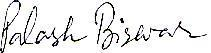 Palash Biswas